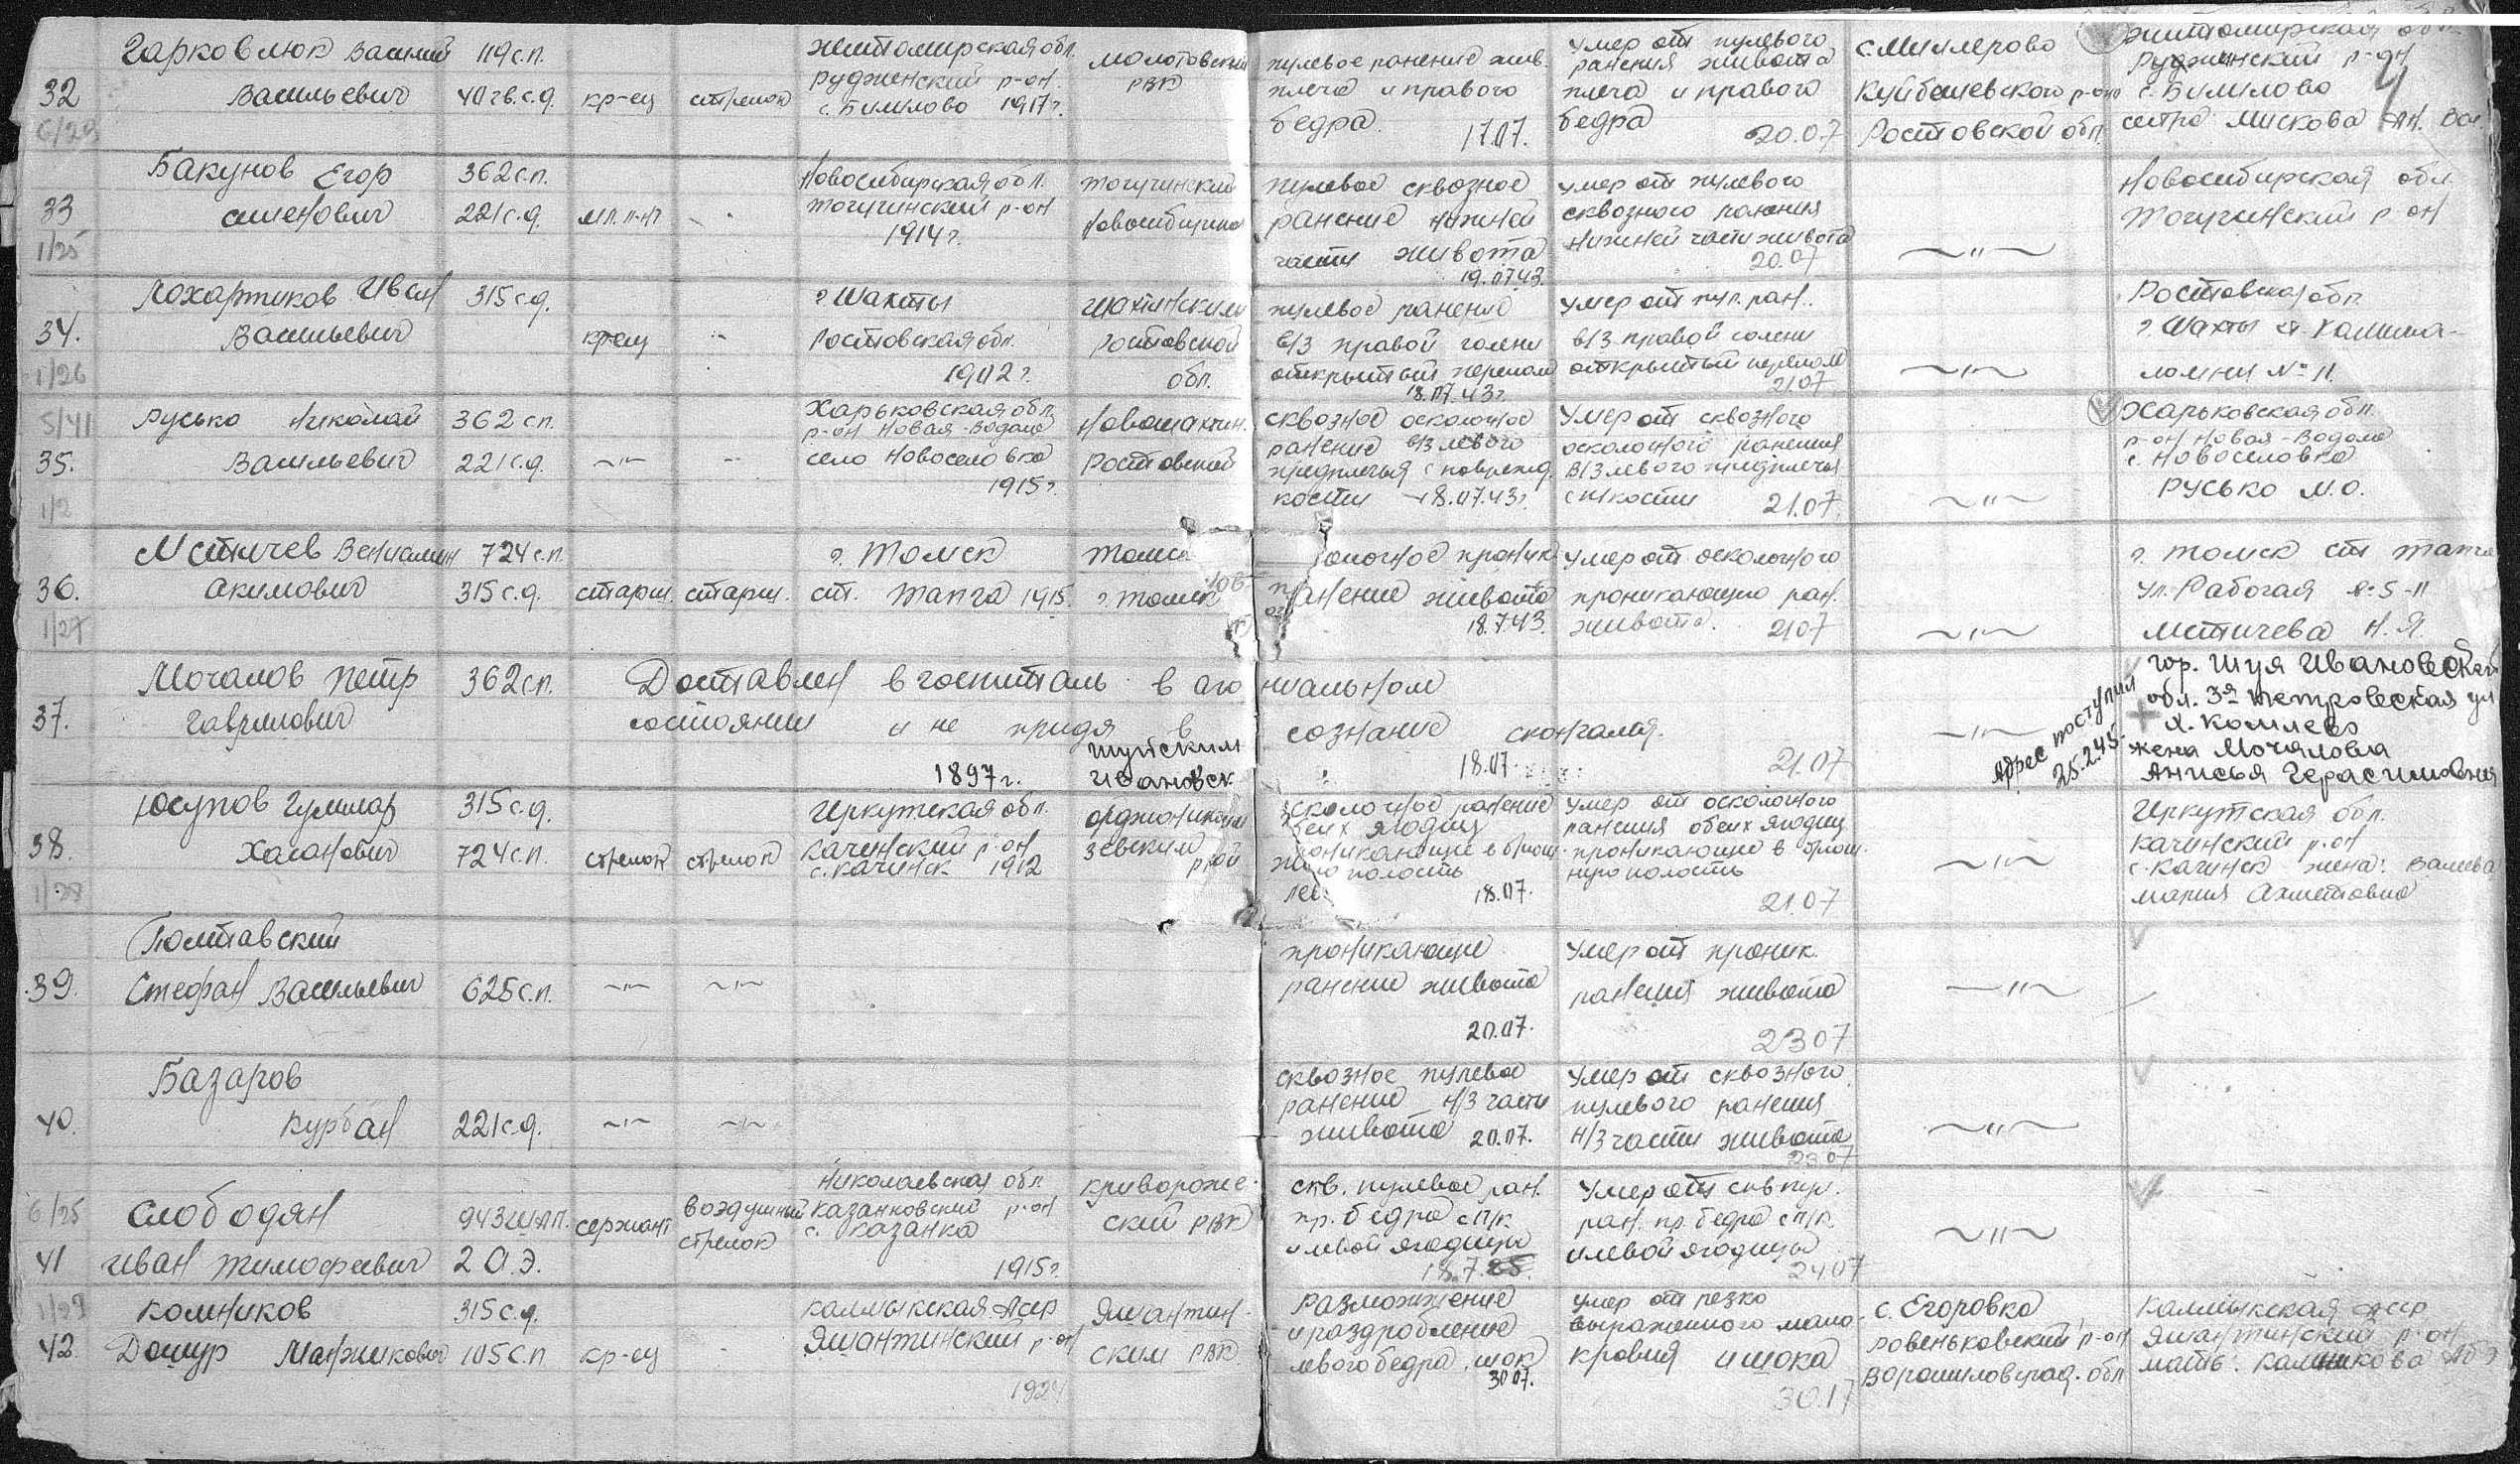 Гарковлюк Василий 119 с.п. житомирская обл. молотовский пулевое ранение жив. умер от пулевого с. Миллерово житомирская обл.
Руджинский р-он РВК ранения живота Руджинский р-он
32 Васильевич 40 гв.с.д. кр-ец стрелок с. Билилово 1917 г. плеча и правого плеча и правого Куйбышевского р-она с. Билилово
6/29 бедра. 17.07. бедра 20.07 Ростовской обл. сестра Мискова Ан. Вас.
Бакунов Егор 362 с.п. Новосибирская обл. тогучинский пулевое сквозное умер от пулевого Новосибирская обл.
33 221 с.д. мл. л-нт тогучинский р-он ранение нижней сквозного ранения Тогучинский р-он
1/25 1914 г. части живота нижней части живота —"—
19.07.43. 20.07
Иван 315 с.д. г. Шахты шахтинским пулевое ранение умер от пул. ран. Ростовская обл.
34. Васильевич кр-ец —"— Ростовская обл. Ростовской в/3 правой голени в/3 правой голени г. Шахты
1/26 1902 г. обл. открытый перелом открытый перелом —"— № 11.
18.07.43 г. 21.07
5/41 Русько Николай 362 сп. Харьковская обл. Новошахтин. сквозное осколочное Умер от сквозного Харьковская обл.
р-он Новая-Водола ранение в/3 левого осколочного ранения р-он Новая-Водола
35. Васильевич 221 с.д. —"— —"— село Новоселовка Ростовской предплечья с поврежд. в/3 левого предплечья с. Новоселовка
1/2 1915 г. кости 18.07.43 г. с п/кости 21.07. —"— Русько М.О.
Мстичев Вениамин 724 с.п. г. Томск проник. умер от осколочного г. Томск ст тайга
36. Акимович 315 с.д. старш. старш. ст. Тайга 1915. г. Томск ранение живота проникающего ран. ул. Рабочая
1/27 18.7.43. живота. 21.07 —"— Мстичева Н.Я.
Мочалов Петр 362 сп. Доставлен в госпиталь в агониальном гор. Шуя Ивановской
37. Гаврилович состоянии и не придя в сознание скончался. —"— обл. 3я Петровская ул
Адрес поступил 25.2.45.
1897 г. шуйским Ивановск. 18.07. 21.07 жена Мочалова
Анисья Герасимовна
Юсупов 315 с.д. Иркутская обл. орджоникидзевским осколочное ранение умер от осколочного Иркутская обл.
обеих ягодиц ранения обеих ягодиц
38. Хасанович 724 с.п. стрелок стрелок качинский р-он проникающие в брюш. проникающие в брюш. —"— качинский р-он
1/28 с. качинск 1912 полость полость с. Качинск жена: Валиева
18.07. 21.07 мария Ахметовна
Полтавский проникающие Умер от проник.
39. Стефан Васильевич 625 с.п. —"— —"— ранение живота ранения живота —"—
20.07. 23 07
Базаров сквозное пулевое Умер от сквозного
ранение н/3 части пулевого ранения
40. Курбан 221 с.д. —"— —"— живота 20.07. н/3 части живота —"—
23 07
Николаевская обл криворож- скв. пулевое ран. Умер от скв пул.
6/25 Слободян 943 ШАП. сержант воздушный казанковский р-он ский РВК пр. бедра с п/к ран. пр. бедра с п/к
стрелок с. казанка —"—
41 Иван Тимофеевич 2 А.Э. и левой ягодицы и левой ягодицы
1915 г. 18.7. 24 07
1/29 Колников 315 с.д. калмыкская Аср Яшантин- Размозжение умер от резко с. Егоровка Калмыкская аср
Яшантинский р-он и раздробление выраженного мало- ровеньковский р-он Яшантинский р-он
42. Дошур Манжикович 105 с.п кр-ец ским РВК. левого бедра, шок кровия и шока Ворошиловград. обл мать:
1924 30 07. 30.17